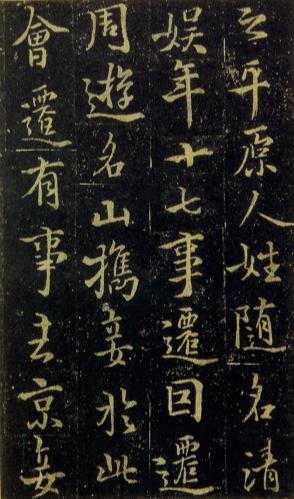 云平原人姓随名清
娱年十七事遷因遷
周遊名山攜妾於此
會遷有事去京妾